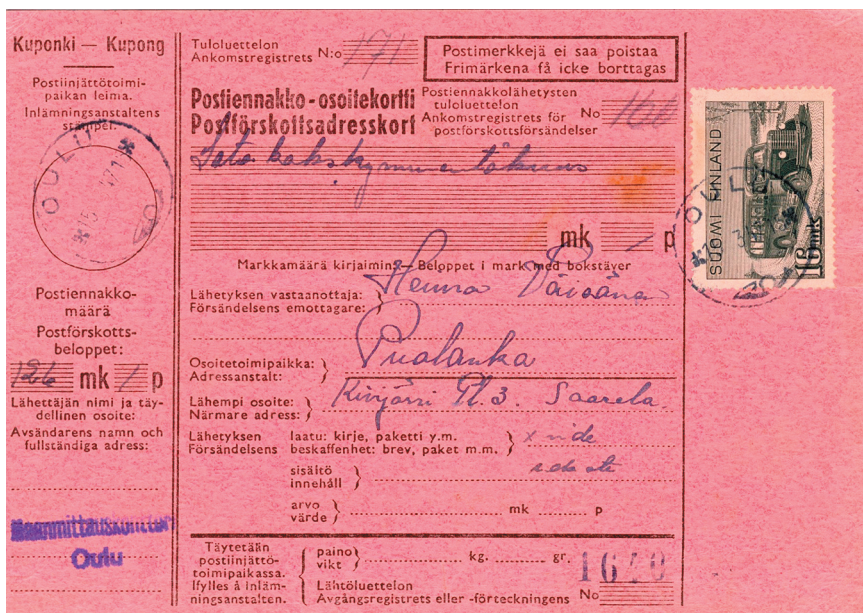 Kuponki — Kupong
Postiinjättötoimi-
paikan leima.
Inlämningsanstaltens
stämpel.
OULU
Postiennakko-
määrä
Postförskotts-
beloppet:
126 mk / p
Lähettäjän nimi ja täy-
dellinen osoite:
Avsändarens namn och
fullständiga adress:
Maanmittauskonttori
Oulu
Tuloluettelon
Ankomstregistrets N:o 171
Postimerkkejä ei saa poistaa
Frimärkena få icke borttagas
Postiennakko-osoitekortti
Postförskottsadresskort
Postiennakkolähetysten
tuloluettelon
Ankomstregistrets för No 160
postförskottsförsändelser
Sata kakskymmentäkuus
mk / p
Markkamäärä kirjaimin — Beloppet i mark med bokstäver
Lähetyksen vastaanottaja:
Försändelsens emottagare:
Väisänen
Osoitetoimipaikka:
Adressanstalt:
Puolanka
Lähempi osoite:
Närmare adress:
Kivijärvi Pl.3. Saarela.
Lähetyksen laatu: kirje, paketti y.m.
Försändelsens beskaffenhet: brev, paket m.m.
sisältö
innehåll
arvo
värde
mk p
Täytetään
postiinjättö-
toimipaikassa.
Ifylles å inläm-
ningsanstalten.
paino
vikt
kg. gr.
1640
Lähtöluettelon
Avgångsregistrets eller -förteckningens No
SUOMI FINLAND
16 mk
OULU